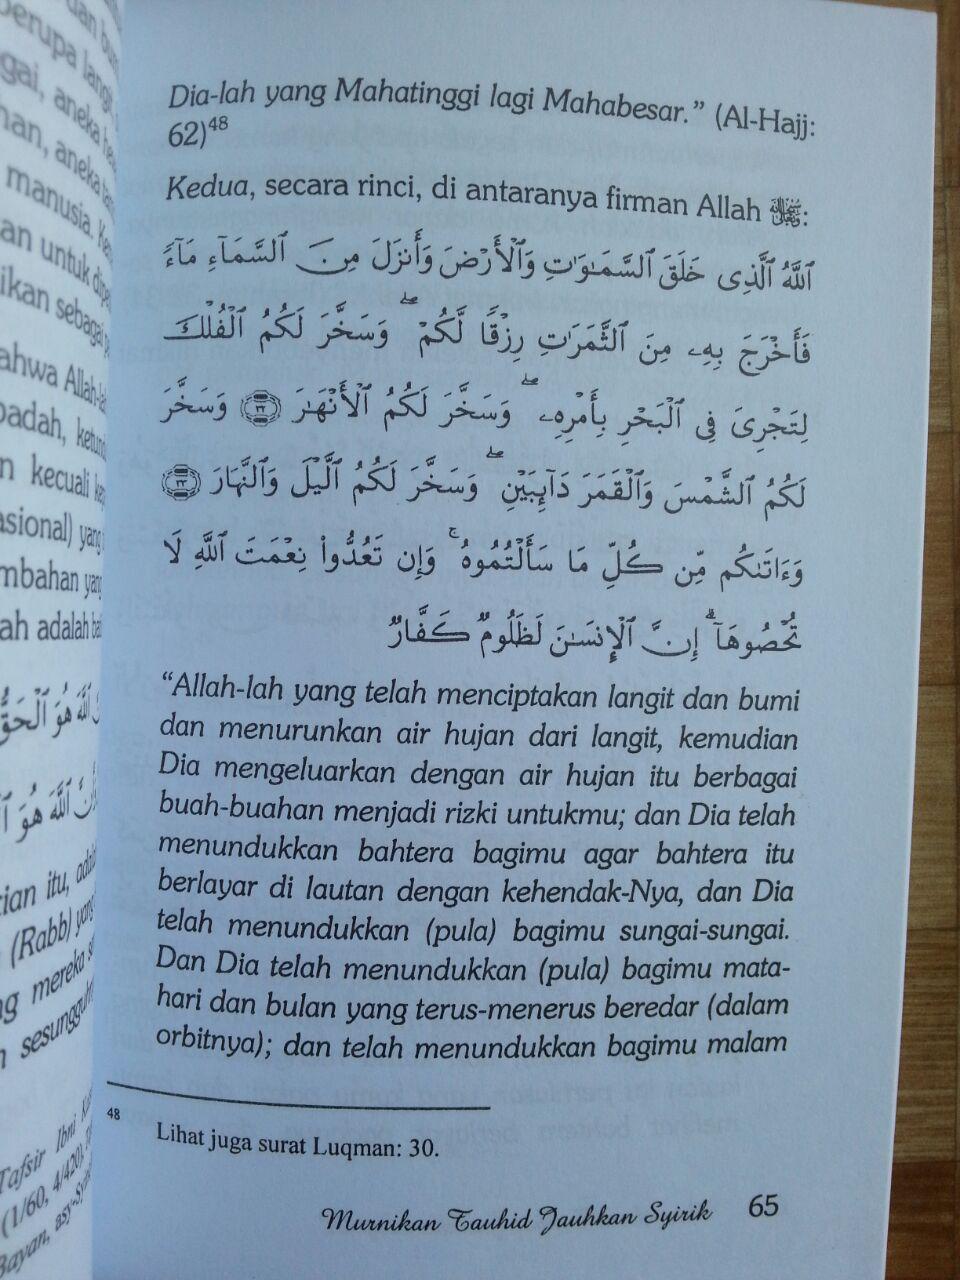 Dia-lah yang Mahatinggi lagi Mahabesar.” (Al-Hajj:
62)48
Kedua, secara rinci, di antaranya firman Allah ﷻ:
ٱللَّهُ ٱلَّذِى خَلَقَ ٱلسَّمَـٰوَٰتِ وَٱلْأَرْضَ وَأَنزَلَ مِنَ ٱلسَّمَآءِ مَآءً
فَأَخْرَجَ بِهِۦ مِنَ ٱلثَّمَرَٰتِ رِزْقًا لَّكُمْ ۖ وَسَخَّرَ لَكُمُ ٱلْفُلْكَ
لِتَجْرِىَ فِى ٱلْبَحْرِ بِأَمْرِهِۦ ۖ وَسَخَّرَ لَكُمُ ٱلْأَنْهَـٰرَ ٣٢ وَسَخَّرَ
لَكُمُ ٱلشَّمْسَ وَٱلْقَمَرَ دَآئِبَيْنِ ۖ وَسَخَّرَ لَكُمُ ٱلَّيْلَ وَٱلنَّهَارَ ٣٣
وَءَاتَىٰكُم مِّن كُلِّ مَا سَأَلْتُمُوهُ ۚ وَإِن تَعُدُّوا۟ نِعْمَتَ ٱللَّهِ لَا
تُحْصُوهَآ ۗ إِنَّ ٱلْإِنسَـٰنَ لَظَلُومٌ كَفَّارٌ
“Allah-lah yang telah menciptakan langit dan bumi
dan menurunkan air hujan dari langit, kemudian
Dia mengeluarkan dengan air hujan itu berbagai
buah-buahan menjadi rizki untukmu; dan Dia telah
menundukkan bahtera bagimu agar bahtera itu
berlayar di lautan dengan kehendak-Nya, dan Dia
telah menundukkan (pula) bagimu sungai-sungai.
Dan Dia telah menundukkan (pula) bagimu mata-
hari dan bulan yang terus-menerus beredar (dalam
orbitnya); dan telah menundukkan bagimu malam
48 Lihat juga surat Luqman: 30.
Murnikan Tauhid Jauhkan Syirik 65